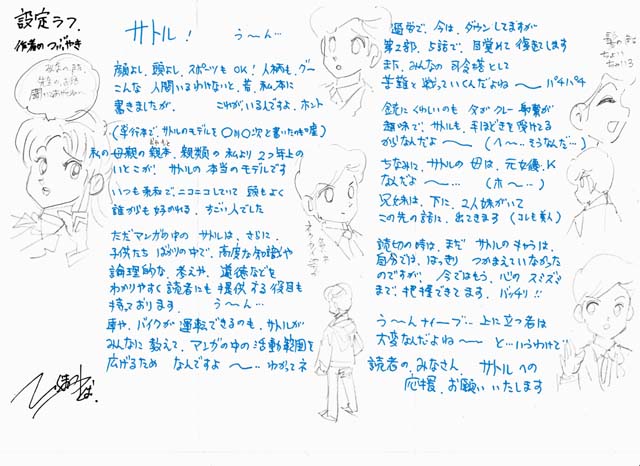 設定ラフ.
作者のつぶやき
みなの方
先生のお話
サトル! う〜ん…
顔よし、頭よし、スポーツもOK! 人柄も、グー
こんな人間いるわけないと、昔、私、本に
書きましたが、 これがいるんですよ、ホント
私の母親の親類の私より2つ年上の
いとこが! サトルの本当のモデルです
いつも柔和で、ニコニコしていて 頭もよく
誰からも好かれる、すごい人でした
ただマンガの中の サトルは、さらに
子供たち ばかりの中で、高度な知識や
論理的な、考えや、道徳などを
わかりやすく読者にも 提供する役目も
持っております。 う〜ん…
車や、バイクが運転できるのも、サトルが
みんなに教えて、マンガの中の活動範囲を
広げるため なんですよ 〜… わかってネ
過労で、今は、ダウンしてますが
第2部、5話で、目覚めて復活します
また、みんなの司令塔として
苦難と戦っていくんだよね〜 パチパチ
趣味で、サトルも、手ほどきを受けてる
からなんだよ 〜 (へ〜…そうなんだ…)
ちなみに、サトルの母は、元女優、K
なんだよ 〜… (ホ〜…)
兄妹は、下に、2人妹がいて
この先の話に、出てきます (コレも美人)
読切の時は、まだ サトルのキャラは、
自分では、はっきり つかまえていなかった
のですが、今ではもう、心のスミズミ
まで、把握できてます、バッチリ!!
う〜んナイーブ…上に立つ者は
大変なんだよね〜 と…いうわけで
読者の、みなさん サトルへの
応援、お願いいたします